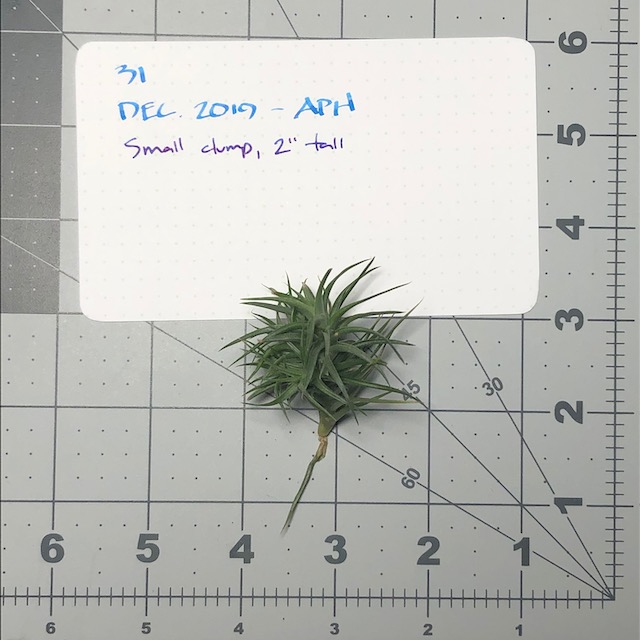 31
DEC. 2019 - APH
Small clump, 2" tall
6
5
4
3
2
1
45
30
60
6 5 4 3 2 1
6 5 4 3 2 1